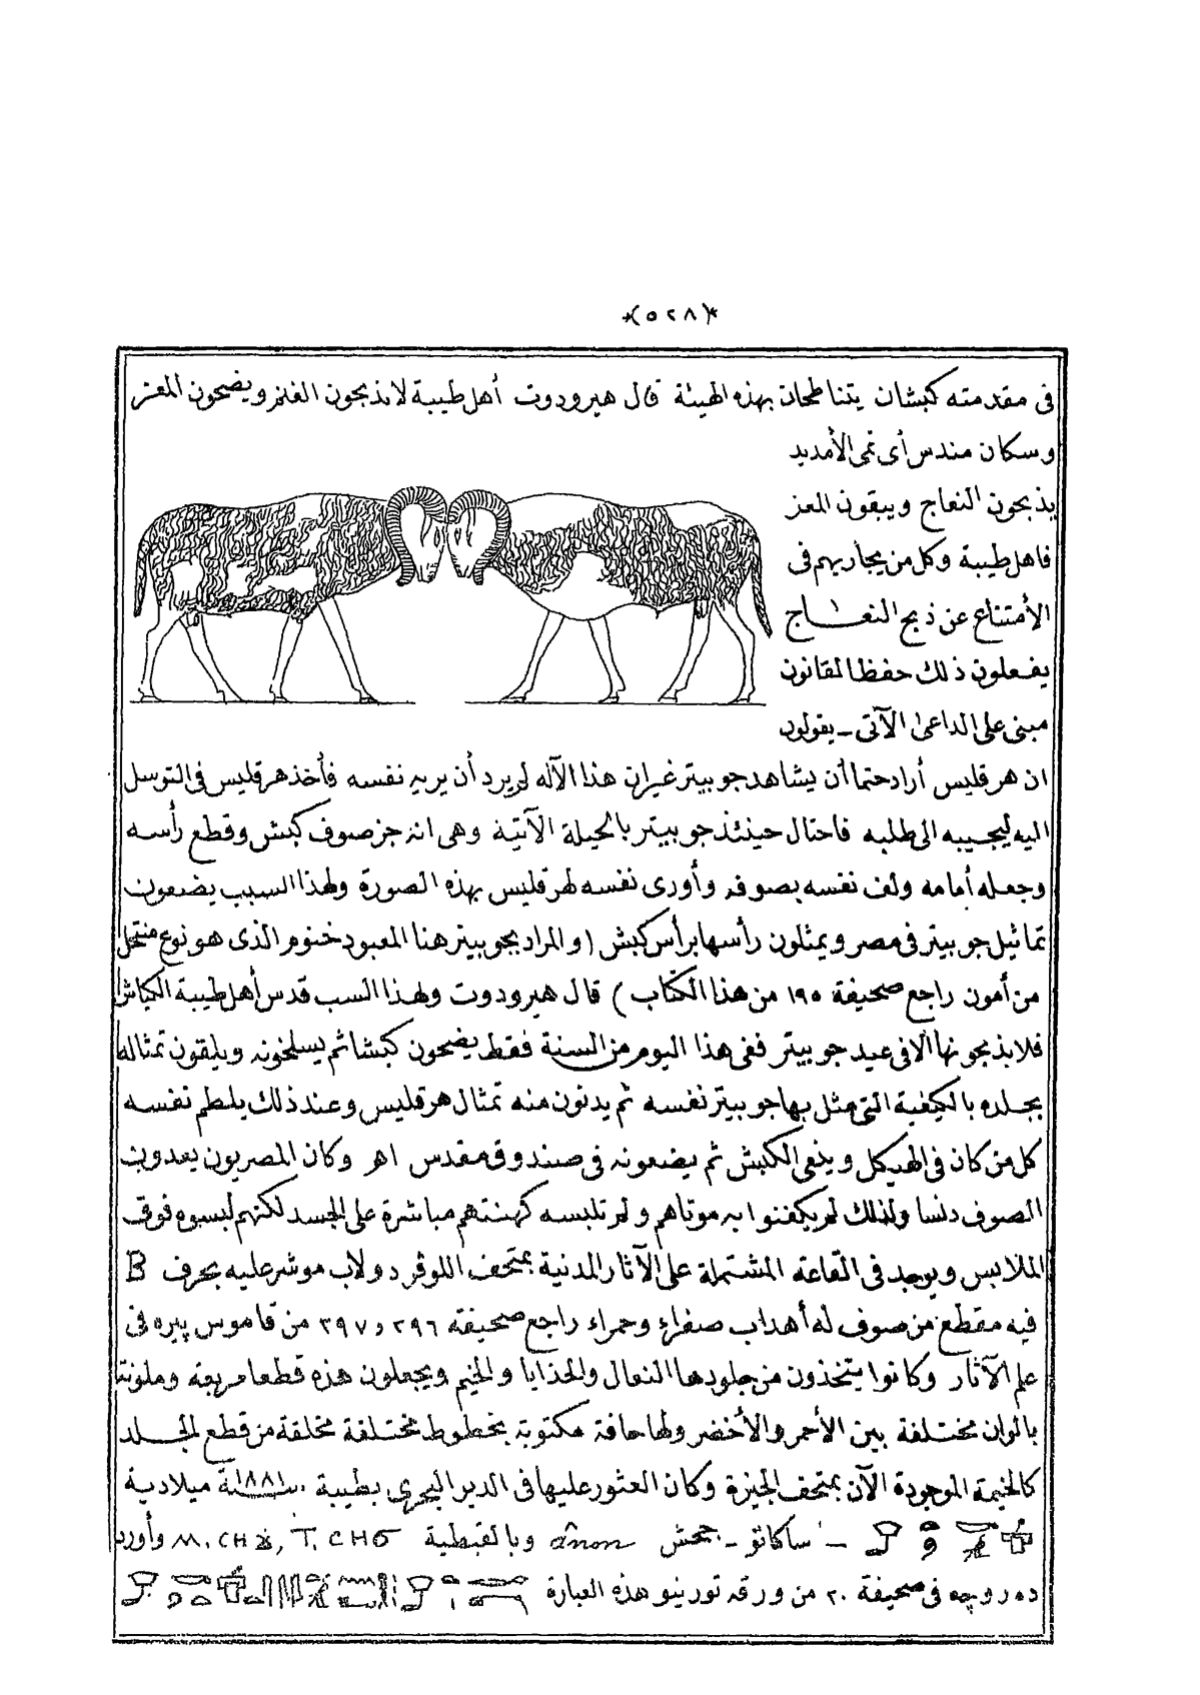 *(٥٢٨)*
فى مقدمته كبشان يتناطحان بهذه الهيئة قال هيرودوت أهل طيبة لا يذبحون الغنم ويضحون المعز
وسكان مندس أى تمى الأمديد
يذبحون النعاج ويبقون المعز
فاهل طيبة وكل من يجاريهم فى
الأمتناع عن ذبح النعاج
يفعلون ذلك حفظا لقانون
مبنى على الداعى الآتى – يقولون
ان هرقليس أراد حتما أن يشاهد جوبيتر غير ان هذا الآله لم يرد أن يريه نفسه فأخذ هرقليس فى التوسل
اليه ليجيبه الى طلبه فاحتال حينئذ جوبيتر بالحيلة الآتية وهى انه جز صوف كبش وقطع رأسه
وجعله أمامه ولف نفسه بصوفه وأورى نفسه لهرقليس بهذه الصورة ولهذا السبب يضعون
تماثيل جوبيتر فى مصر ويمثلون رأسها برأس كبش (والمراد بجوبيتر هنا المعبود خنوم الذى هو نوع منتحل
من أمون راجع صحيفة ١٩٥ من هذا الكتاب) قال هيرودوت ولهذا السبب قدس أهل طيبة الكباش
فلا يذبحونها الا فى عيد جوبيتر ففى هذا اليوم من السنة فقط يضحون كبشا ثم يسلخونه ويلقون تمثاله
بجلده بالكيفية التى مثل بها جوبيتر نفسه ثم يدنون منه تمثال هرقليس وعند ذلك يلطم نفسه
كل من كان فى الهيكل وينعى الكبش ثم يضعونه فى صندوق مقدس اهر وكان المصريون يعدون
الصوف دنسا ولذلك لم يكفنوا به موتاهم ولم تلبسه كهنتهم مباشرة على الجسد لكنهم لبسوه فوق
الملابس ويوجد فى القاعة المشتملة على الآثار المدنية بمتحف اللوڤر دولاب موشر عليه بحرف B
فيه مقطع من صوف له أهداب صفراء وحمراء راجع صحيفة ٣٩٦ و ٣٩٧ من قاموس پيره فى
علم الآثار وكانوا يتخذون من جلودها النعال والحذايا والخيم ويجعلون هذه قطعا مربعة وملونة
بالوان مختلفة بين الأحمر والأخضر ولها حافة مكتوبة بخطوط مختلفة مخلقة من قطع الجلد
كالخيمة الموجودة الآن بمتحف الجيزة وكان العثور عليها فى الدير البحرى بطيبة سنة ١٨٨١ ميلادية
– ساكاتو – جحش ânon وبالقبطية M. CHϪ, T. CHO وأورد
ده روچه فى صحيفة ٢٠ من ورقه تورينو هذه العبارة